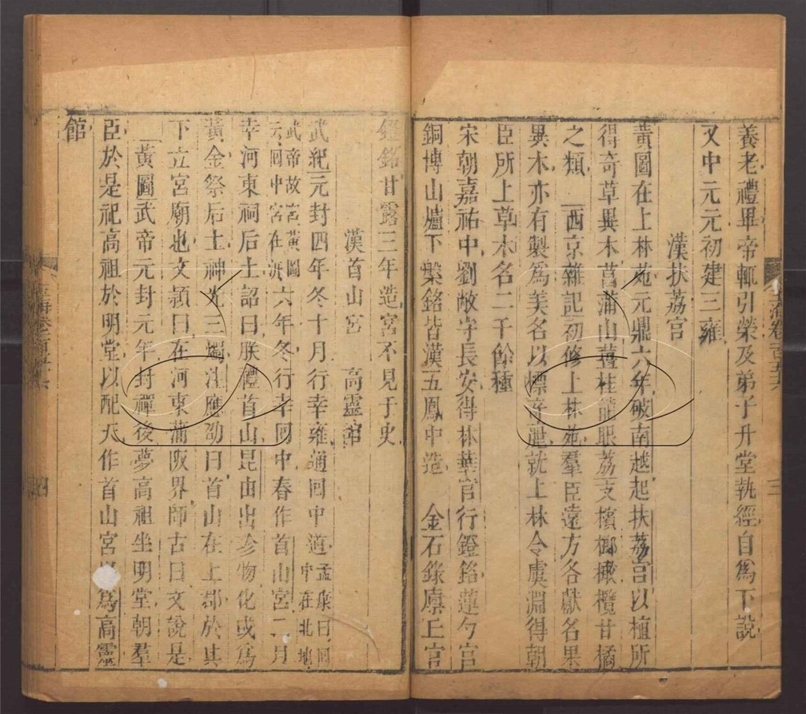 養老禮畢帝輒引榮及弟子升堂執經自爲下說
又中元元初建三雍
漢扶荔宮
黃圖在上林苑元鼎六年破南越起扶荔宮以植所
得奇草異木菖蒲山薑桂龍眼荔支檳榔橄欖甘橘
之類 西京雜記初修上林苑羣臣遠方各獻名果
異木亦有製爲美名以標奇麗就上林令虞淵得朝
臣所上草木名二千餘種
宋朝嘉祐中劉敞守長安得林華宮行鐙銘蓮勺宮
銅博山爐下槃銘皆漢五鳳中造 金石錄麋丘宮
鐙銘甘露三年造宮不見于史
漢首山宮 高靈館
武紀元封四年冬十月行幸雍通回中道孟康曰回中在北地
武帝故宮黃圖云回中宮在汧六年冬行幸回中春作首山宮二月
幸河東祠后土詔曰朕禮首山昆田出珍物化或爲
黃金祭后土神光三燭注應劭曰首山在上郡於其
下立宮廟也文穎曰在河東蒲阪界師古曰文說是
黃圖武帝元封元年封禪後夢高祖坐明堂朝羣
臣於是祀高祖於明堂以配天作首山宮以爲高靈
館